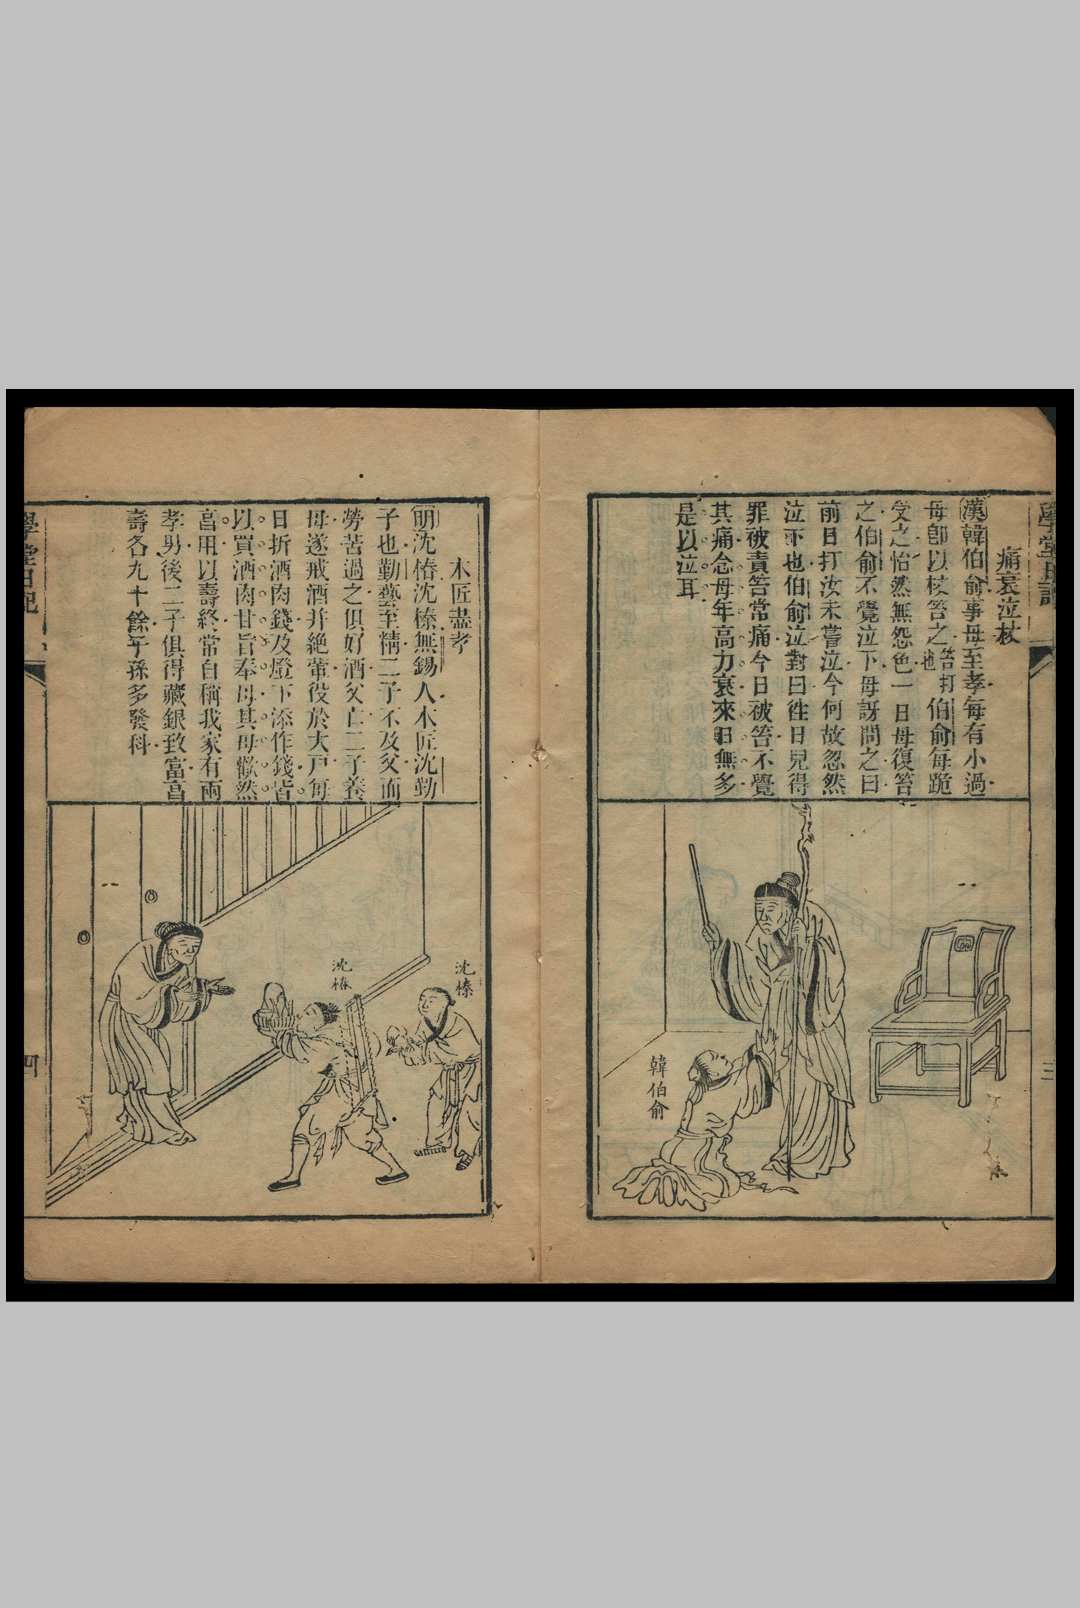 痛衰泣杖
漢韓伯俞事母至孝每有小過
母卽以杖笞之笞打也伯俞每跪
受之怡然無怨色一日母復笞
之伯俞不覺泣下母訝問之曰
前日打汝未嘗泣今何故忽然
泣下也伯俞泣對曰往日兒得
罪被責笞常痛今日被笞不覺
其痛念母年高力衰來日無多
是以泣耳
韓伯俞
三
木匠盡孝
明沈椿沈榛無錫人木匠沈勤
子也勤藝至精二子不及父而
勞苦過之俱好酒父亡二子養
母遂戒酒并絶葷役於大戶每
日折酒肉錢及燈下添作錢皆
以買酒肉甘旨奉母其母歡然
享用以壽終常自稱我家有兩
孝男後二子俱得藏銀致富
壽各九十餘子孫多發科
沈榛
沈椿
學堂日記
四